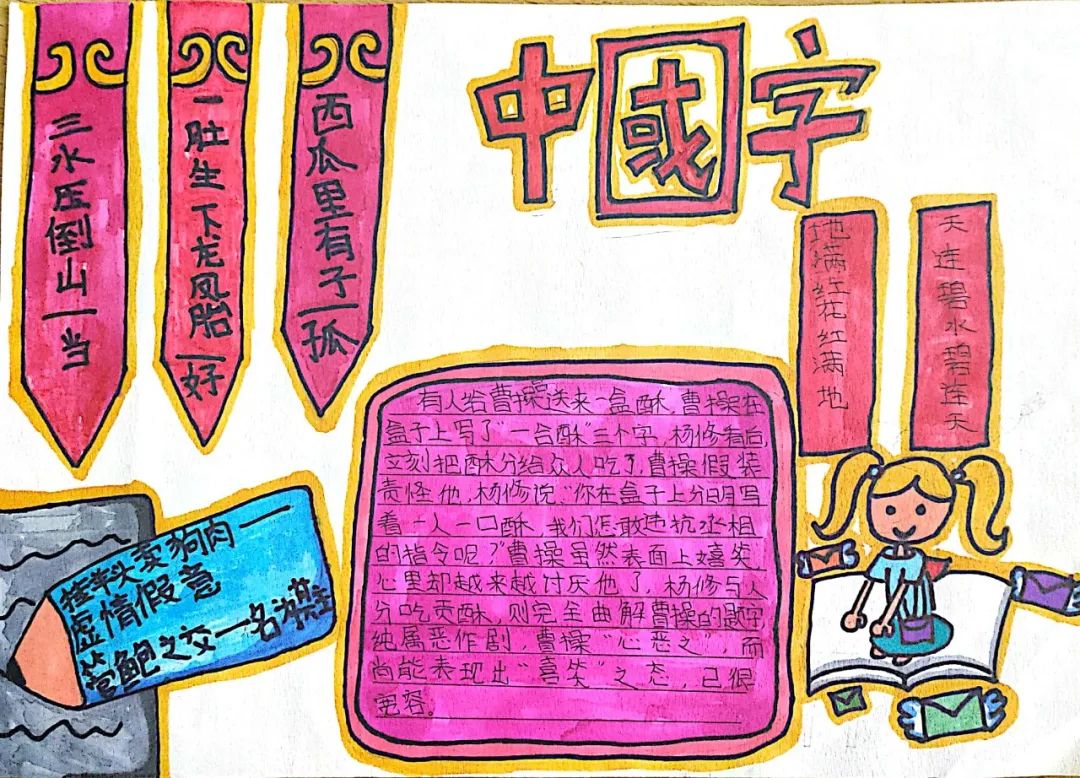 中國字
三水压倒山—当
一肚生下龙凤胎—好
西瓜里有子—孤
天连碧水碧连天
地满红花红满地
有人给曹操送来一盒酥，曹操在
盒子上写了“一合酥”三个字，杨修看后
立刻把酥分给众人吃了，曹操假装
责怪他，杨修说：“你在盒子上分明写
着一人一口酥，我们怎敢违抗丞相
的指令呢？”曹操虽然表面上嬉笑
心里却越来越讨厌他了，杨修与人
分吃贡酥，则完全曲解曹操的题字
纯属恶作剧，曹操“心恶之”，而
尚能表现出“喜笑”之态，已很
宽容。
挂羊头卖狗肉—
虚情假意
管鲍之交—名